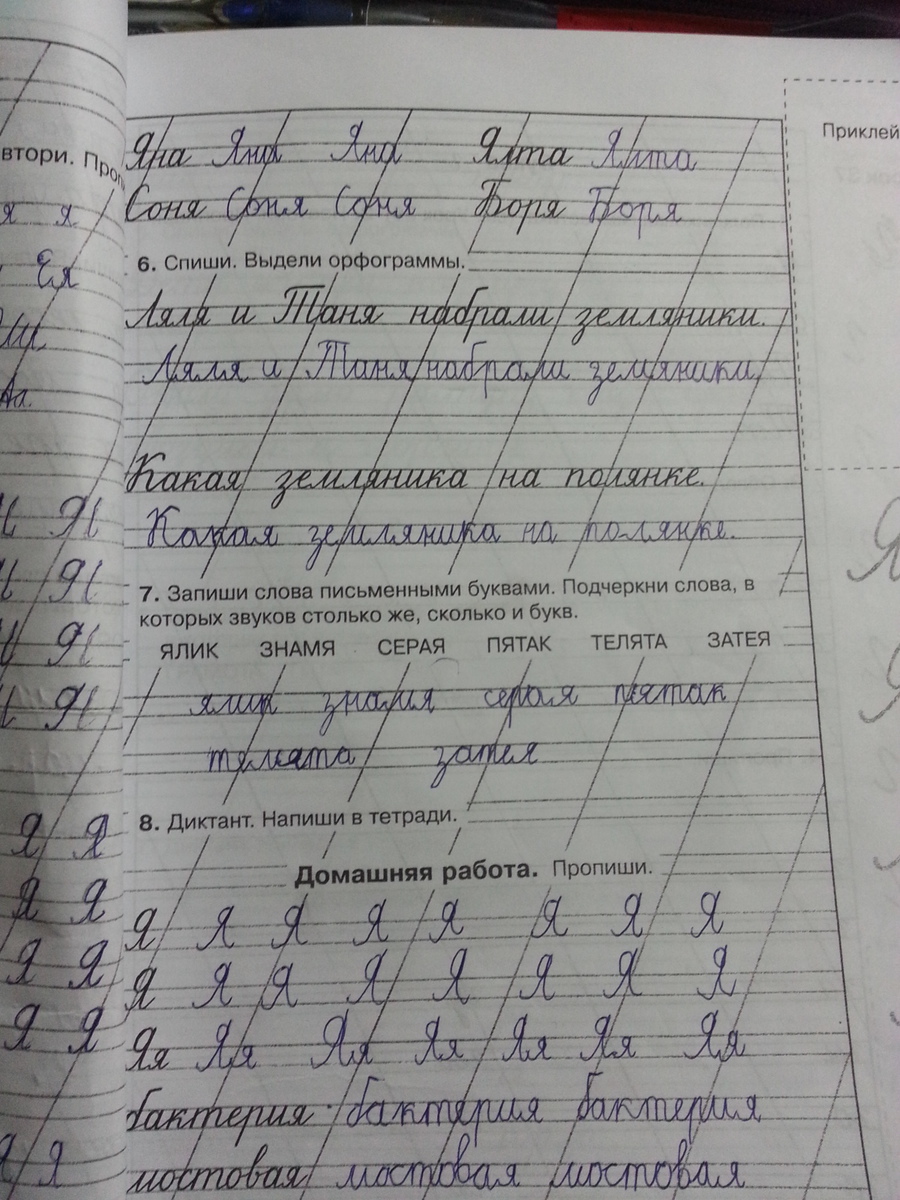 втори.
я я
Ея
Яна Яна Яна Ялта Ялта
Соня Соня Соня Боря Боря
6. Спиши. Выдели орфограммы.
Ляля и Таня набрали земляники.
Ляля и Таня набрали земляники.
Какая земляника на полянке.
Какая земляника на полянке.
7. Запиши слова письменными буквами. Подчеркни слова, в
которых звуков столько же, сколько и букв.
ЯЛИК ЗНАМЯ СЕРАЯ ПЯТАК ТЕЛЯТА ЗАТЕЯ
ялик знамя серая пятак
телята затея
8. Диктант. Напиши в тетради.
Домашняя работа. Пропиши.
Я Я Я Я Я Я Я Я
Я Я Я Я Я Я Я Я
Яя Яя Яя Яя Яя Яя Яя
бактерия бактерия бактерия
мостовая мостовая мостовая
Я Я
Я Я
Я Я
Я Я
Приклей